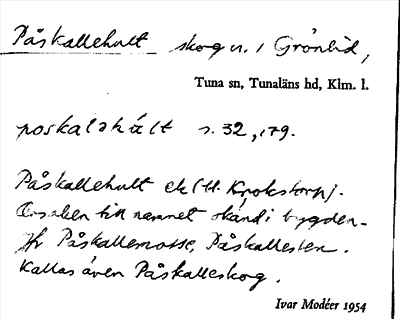 Påskallehult skog u. i Grönlid,
Tuna sn, Tunaläns hd, Klm. l.
poskalshált s. 32, 179.
Påskallehult ek (t. Krokstorp).
Orsaken till namnet okänd i bygden.
Jfr Påskallemosse, Påskallesten.
Kallas även Påskalleskog.
Ivar Modéer 1954